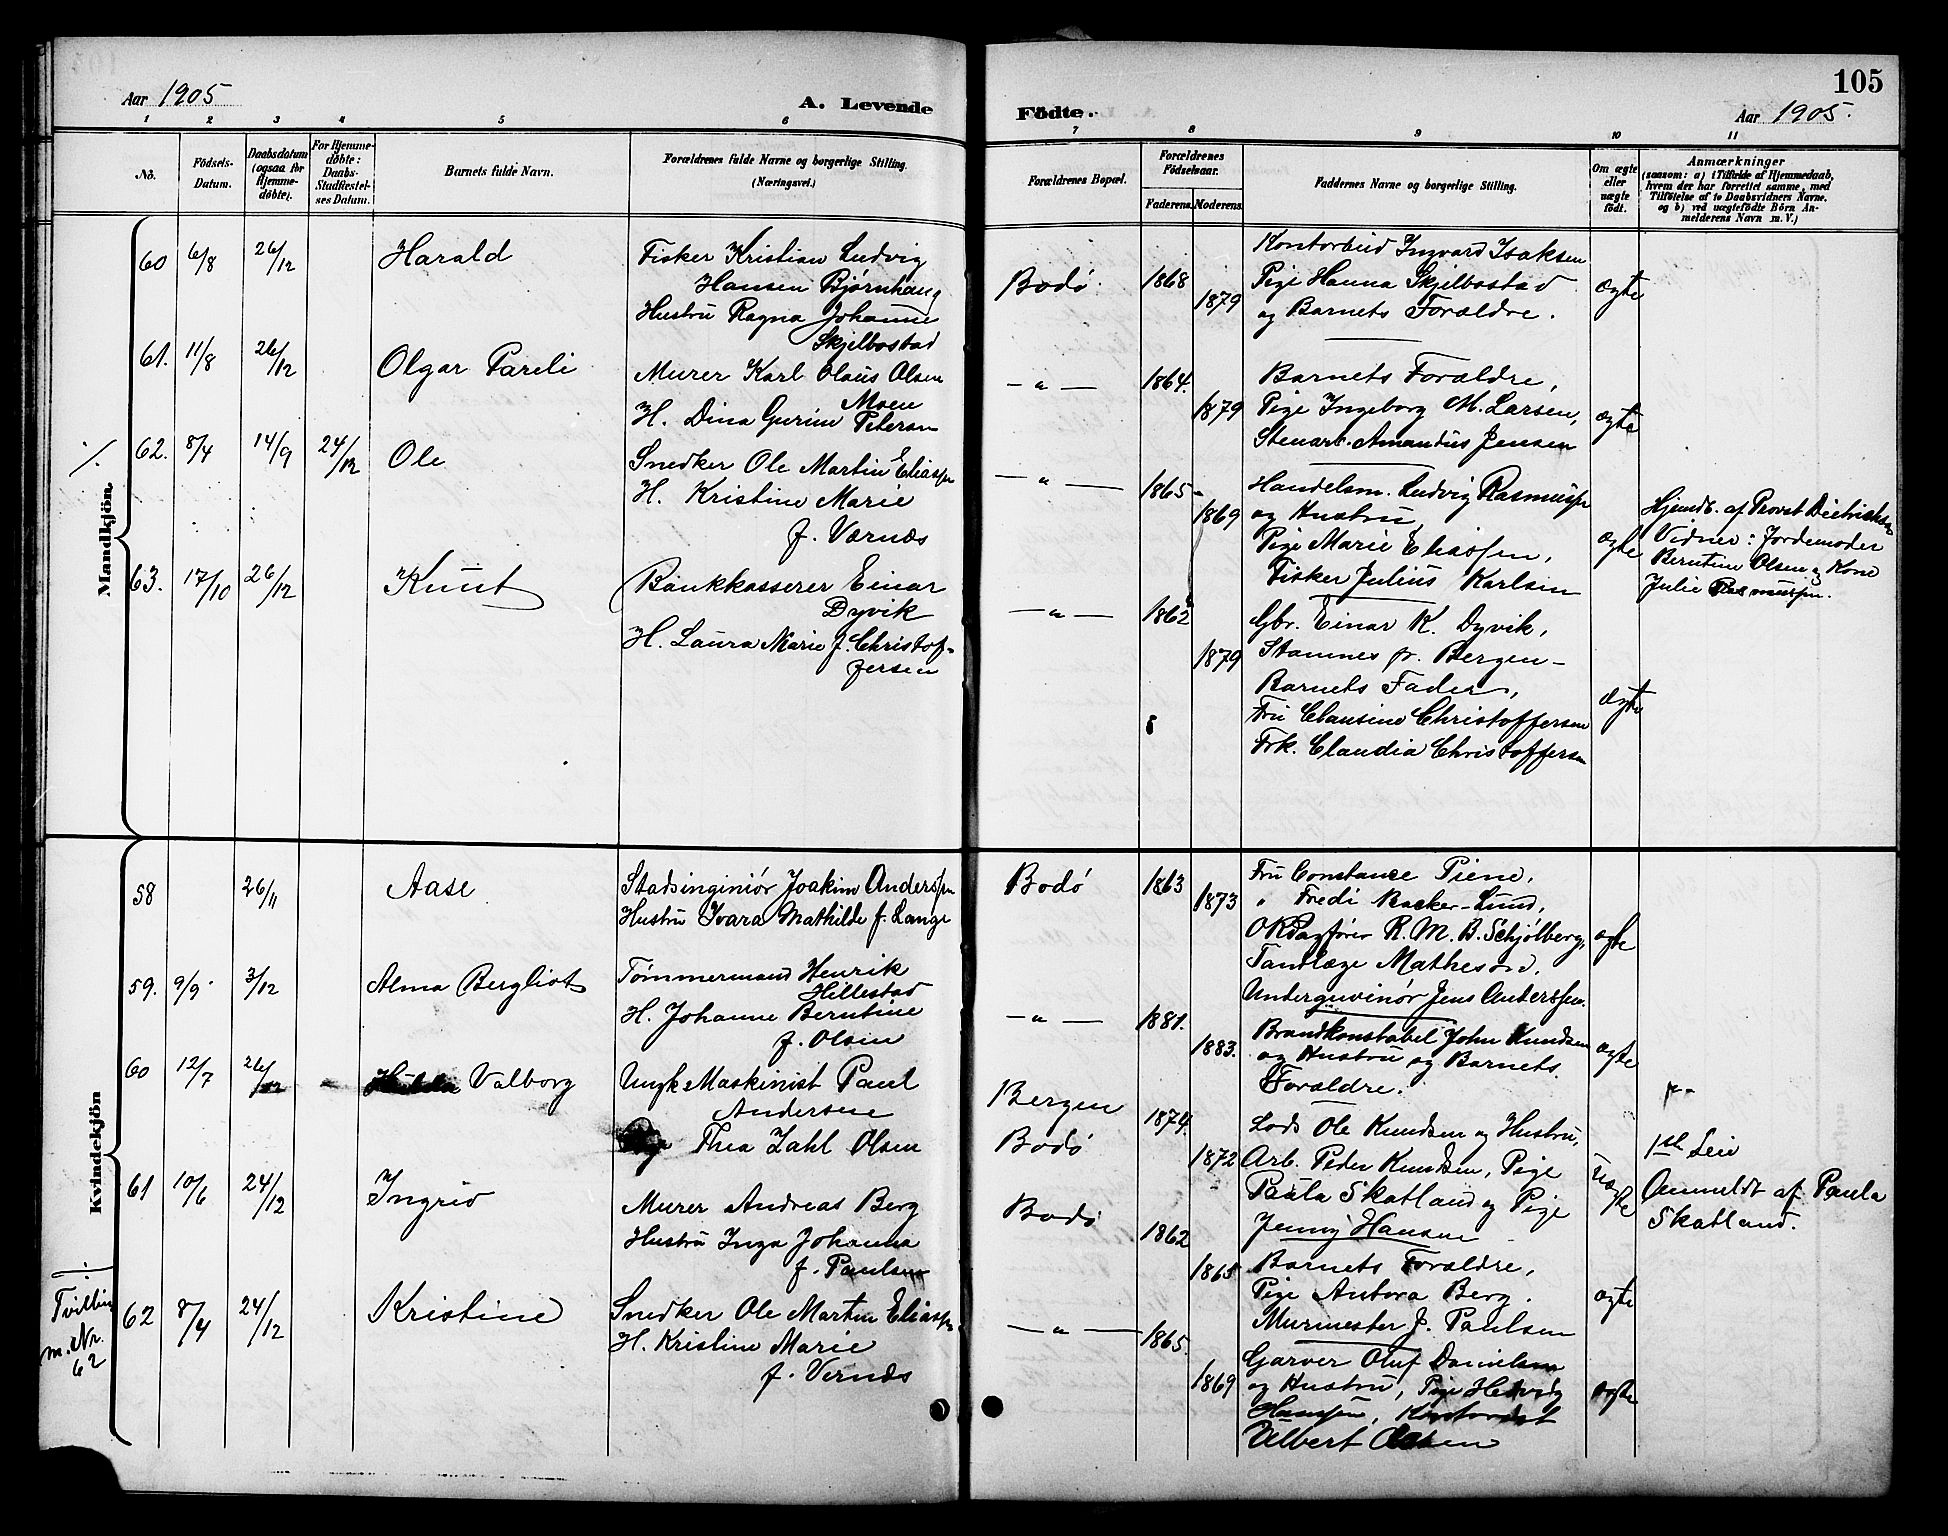 105
Aar 1905
A. Levende
Födte.
Aar 1905.
1 2 3 4 5 6 7 8 9 10 11
No.
Födsels-
Datum.
Daabsdatum
(ogsaa for
Hjemme-
døbte).
For Hjemme-
døbte:
Daabs-
Stadfæstel-
ses Datum.
Barnets fulde Navn.
Forældrenes fulde Navne og borgerlige Stilling.
(Næringsvei.)
Forældrenes Bopæl.
Forældrenes
Födselsaar.
Faderens.
Moderens.
Faddernes Navne og borgerlige Stilling.
Om ægte
eller
uægte
födt.
Anmærkninger
(saasom: a) i Tilfælde af Hjemmedaab,
hvem der har forrettet samme, med
Tilföielse af to Daabsvidners Navne,
og b) ved uægtefödte Börn An-
melderens Navn m. V.)
Mandkjön
60 6/8 26/12 Harald
Fisker Kristian Ludvig
Hansen Bjørnhaug
Hustru Ragna Johanne
Skjelbostad
Bodø. 1868 1879
Kontorbud Ingvard Isaksen
Pige Hanna Skjelbostad
og Barnets Forældre.
ægte
61. 11/8 26/12 Olgar Pareli
Murer Karl Olaus Olsen
Moen
H. Dina Gurine Peterson
— " — 1864. 1879
Barnets Forældre,
Pige Ingeborg M. Larsen,
Stenarb. Amandus Jensen
ægte
62. 8/4 14/9 24/12 Ole
Snedker Ole Martin Eliassen
H. Kristine Marie
f. Værnes
— " — 1865 1869
Handelsm. Ludvig Rasmussen
og Hustru,
Pige Marie Eliassen,
Fisker Julius Karlsen
ægte
Hjemdb. af Provst Dietrichson
Vidner: Jordemoder
Berntine Olsen og Kone
Julie Rasmussen.
63. 17/10 26/12 Knut
Bankkasserer Einar
Dyvik
H. Laura Marie f. Christof-
fersen
— " — 1862 1879
Gbr. Einar K. Dyvik,
Stamnes pr. Bergen—
Barnets Fader,
Fru Clausine Christoffersen
Frk. Claudia Christoffersen
ægte
Kvindekjön
58 26/11 Aase
Stadsingeniør Joakim Anderssen
Hustru Ivara Mathilde f. Lange
Bodø 1863 1873
Fru Constance Piene,
" Fredi Backer-Lund,
O R Sagfører R. M. B. Schjølberg,
Tandlæge Matheson,
Jens Anderssen.
ægte
59. 9/9 3/12 Alma Bergliot
Tømmermand Henrik
Hillestad
H. Johanne Berntine
f. Olsen
— " — 1881. 1883.
Brandkonstabel John Knudsen
og Hustru og Barnets
Forældre.
ægte
60 12/7 26/12 Hulda Valborg
Ungk Maskinist Paul
Andersen
Pige Thea Zahl Olsen
Bergen
Bodø
1874. 1872
Lods Ole Knudsen og Hustru,
Arb. Peder Knudsen, Pige
Paula Skatland og Pige
Jenny Hansen
uægte
1st Leie
Anmeldt af Paula
Skatland.
61 10/6 24/12 Ingrid
Murer Andreas Berg
Hustru Inga Johanna
f. Paulsen
Bodø 1862 1865
Barnets Forældre,
Pige Antora Berg.
Murmester J. Paulsen
ægte
Tvilling
m. Nr.
62
62 8/4 24/12 Kristine
Snedker Ole Martin Eliassen
H. Kristine Marie
f. Vernes
— " — 1865. 1869
Garver Oluf Danielsen
og Hustru, Pige Hedvig
Hansen,
Albert Olsen
ægte